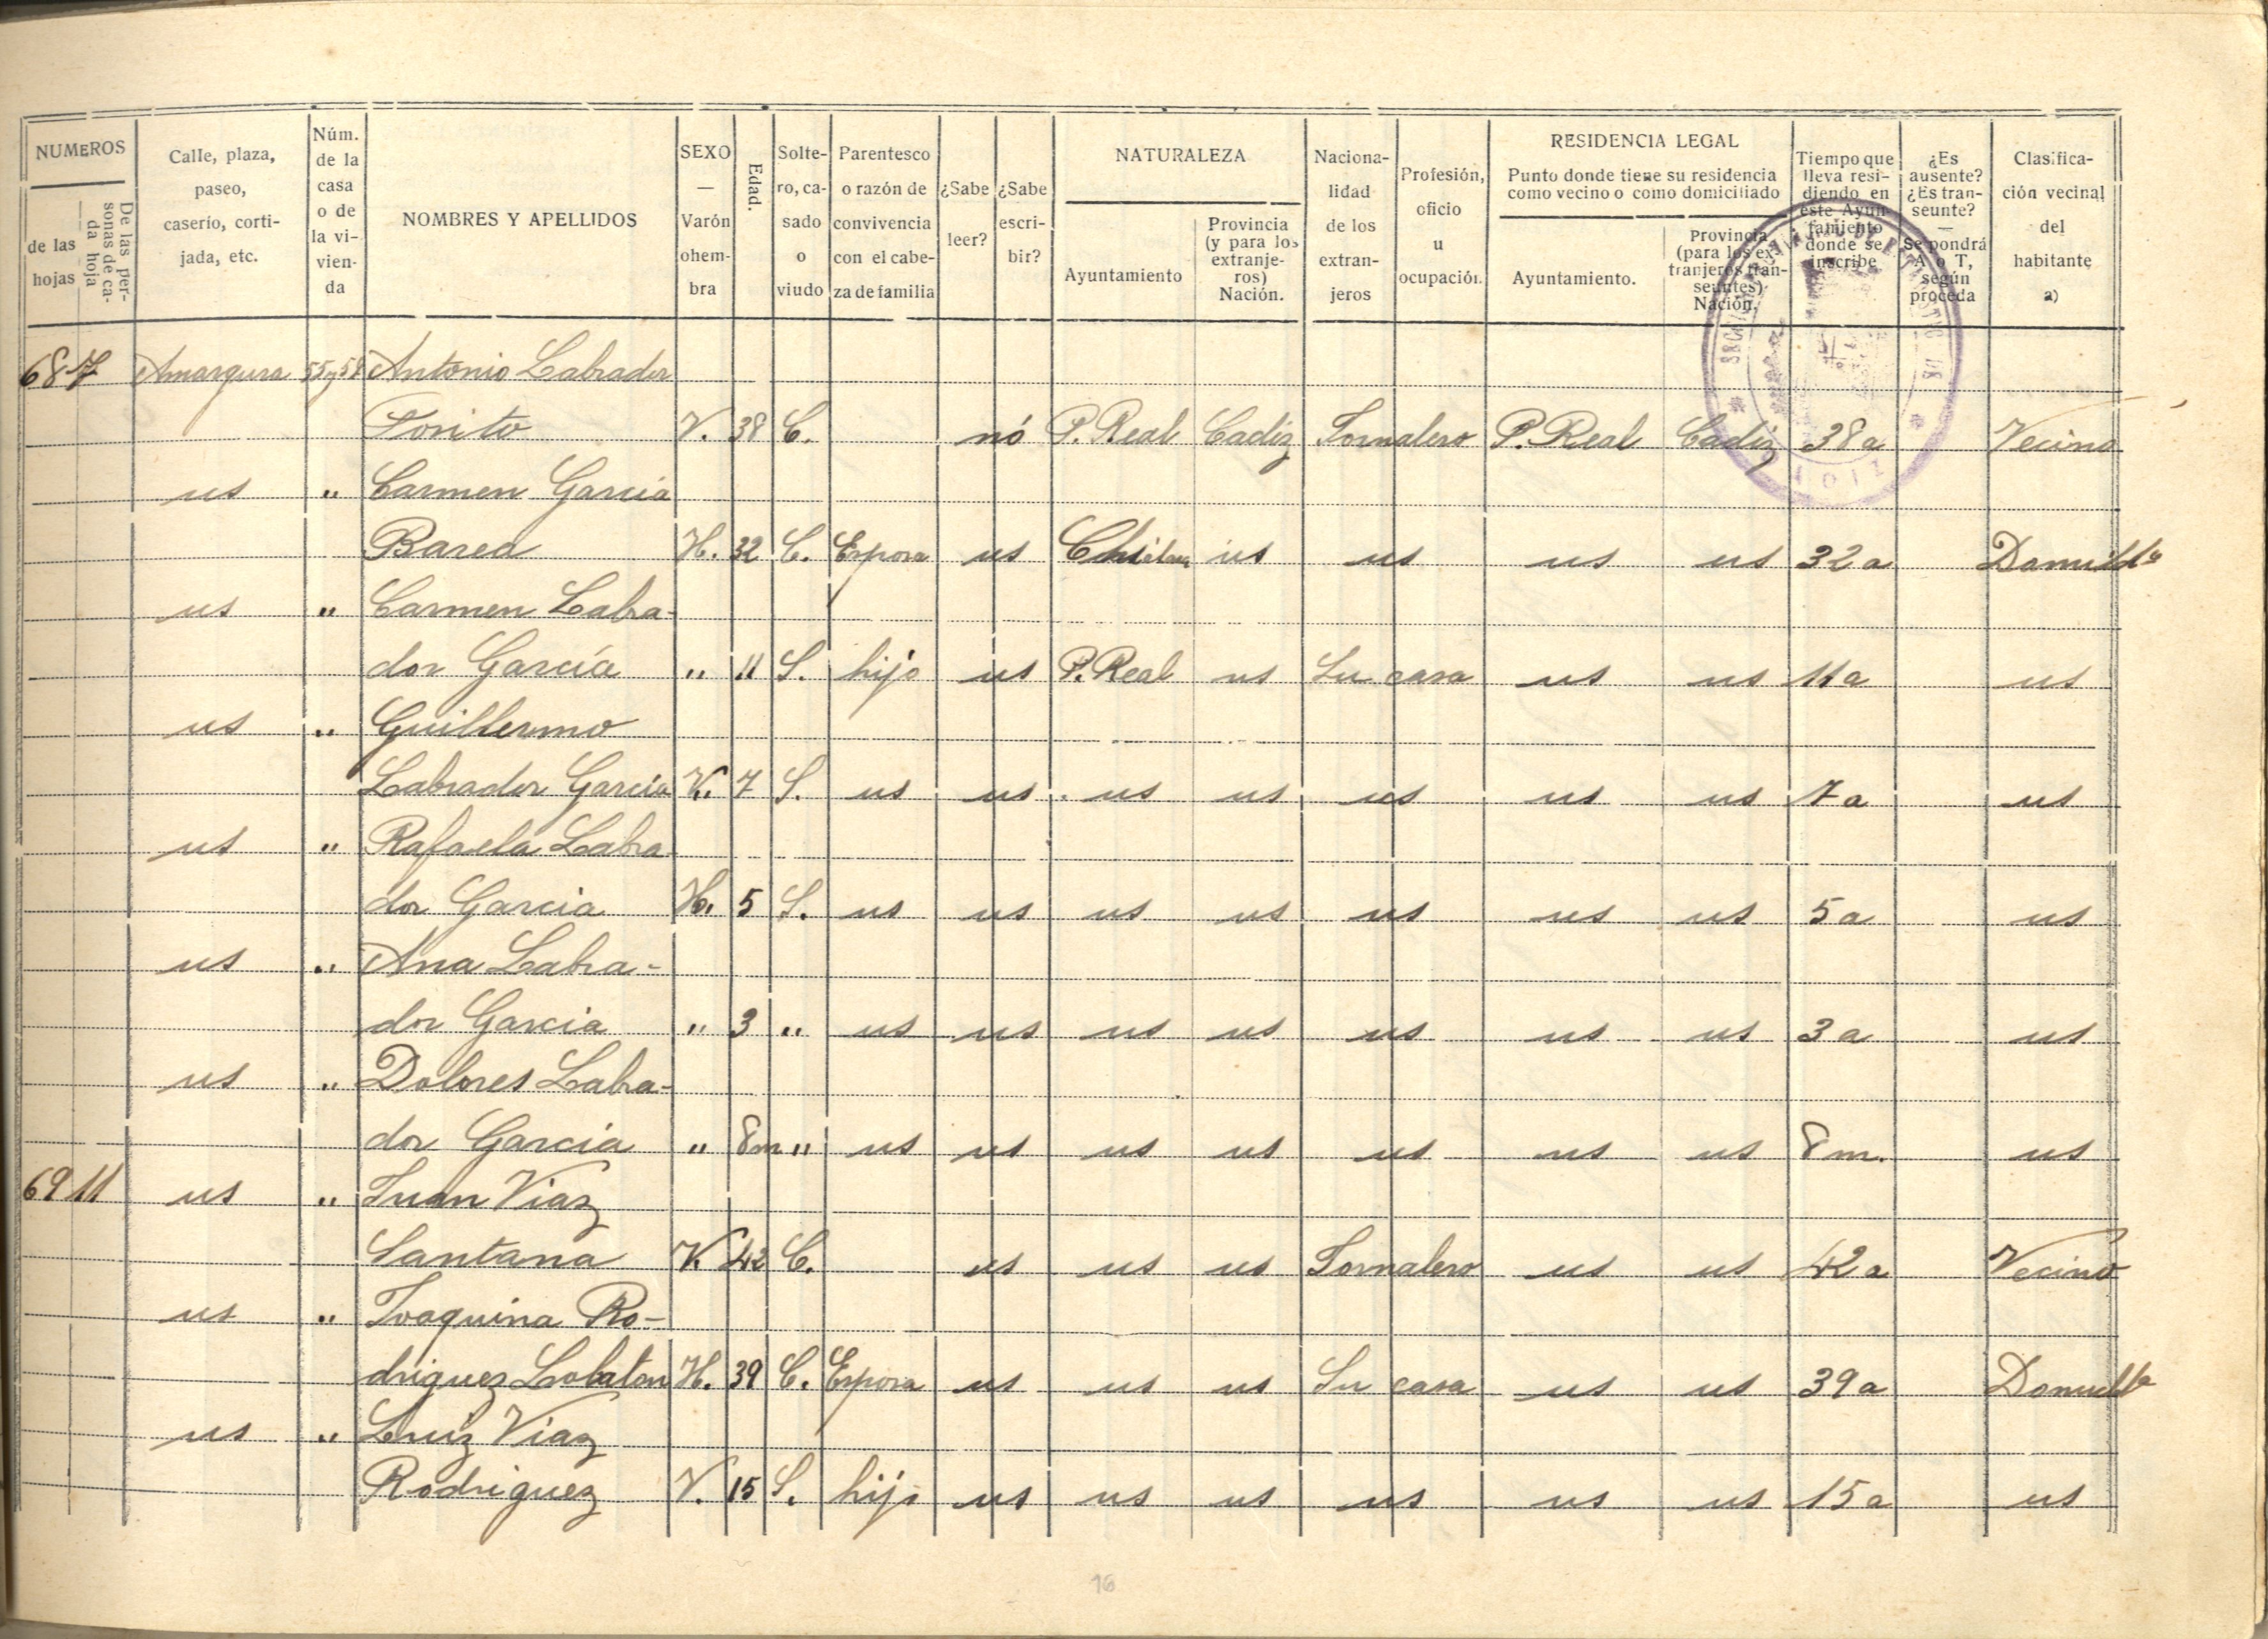 NUMEROS
de las hojas
De las personas de cada hoja
Calle, plaza, paseo, caserío, cortijada, etc.
Núm. de la casa o de la vivienda
NOMBRES Y APELLIDOS
SEXO — Varón o hembra
Edad.
Soltero, casado o viudo
Parentesco o razón de convivencia con el cabeza de familia
¿Sabe leer?
¿Sabe escribir?
NATURALEZA
Ayuntamiento
Provincia (y para los extranjeros) Nación.
Nacionalidad de los extranjeros
Profesión, oficio u ocupación.
RESIDENCIA LEGAL
Punto donde tiene su residencia como vecino o como domiciliado
Ayuntamiento.
Provincia (para los extranjeros transeuntes) Nación.
Tiempo que lleva residiendo en este Ayuntamiento donde se inscribe
¿Es ausente? ¿Es transeunte? — Se pondrá A o T, según proceda
Clasificación vecinal del habitante a)
68 7 Amargura 55y58 Antonio Labrador
V. 38 C. nó P. Real Cadiz Jornalero P. Real Cadiz 38a Vecino
us " Carmen Garcia
Barea H. 32 C. Esposa us us us us us 32a
us " Carmen Labra-
dor García " 11 S. hijo us P. Real us Su casa us us 11a us
us " Guillermo
Labrador Garcia V. 7 S. us us us us us us us 7a us
us " Rafaela Labra
dor Garcia H. 5 S. us us us us us us us 5a us
us " Ana Labra-
dor Garcia " 3 " us us us us us us us 3a us
us " Dolores Labra-
dor Garcia " 8m " us us us us us us us 8m. us
69 11 us " Juan Viaz
Santana V. 42 C. us us us Jornalero us us 42a Vecino
us " Joaquina Ro-
driguez Lobaton H. 39 C. Esposa us us us Su casa us us 39a
us " Luiz Viaz
Rodriguez V. 15 S. hijo us us us us us us 15a us
16